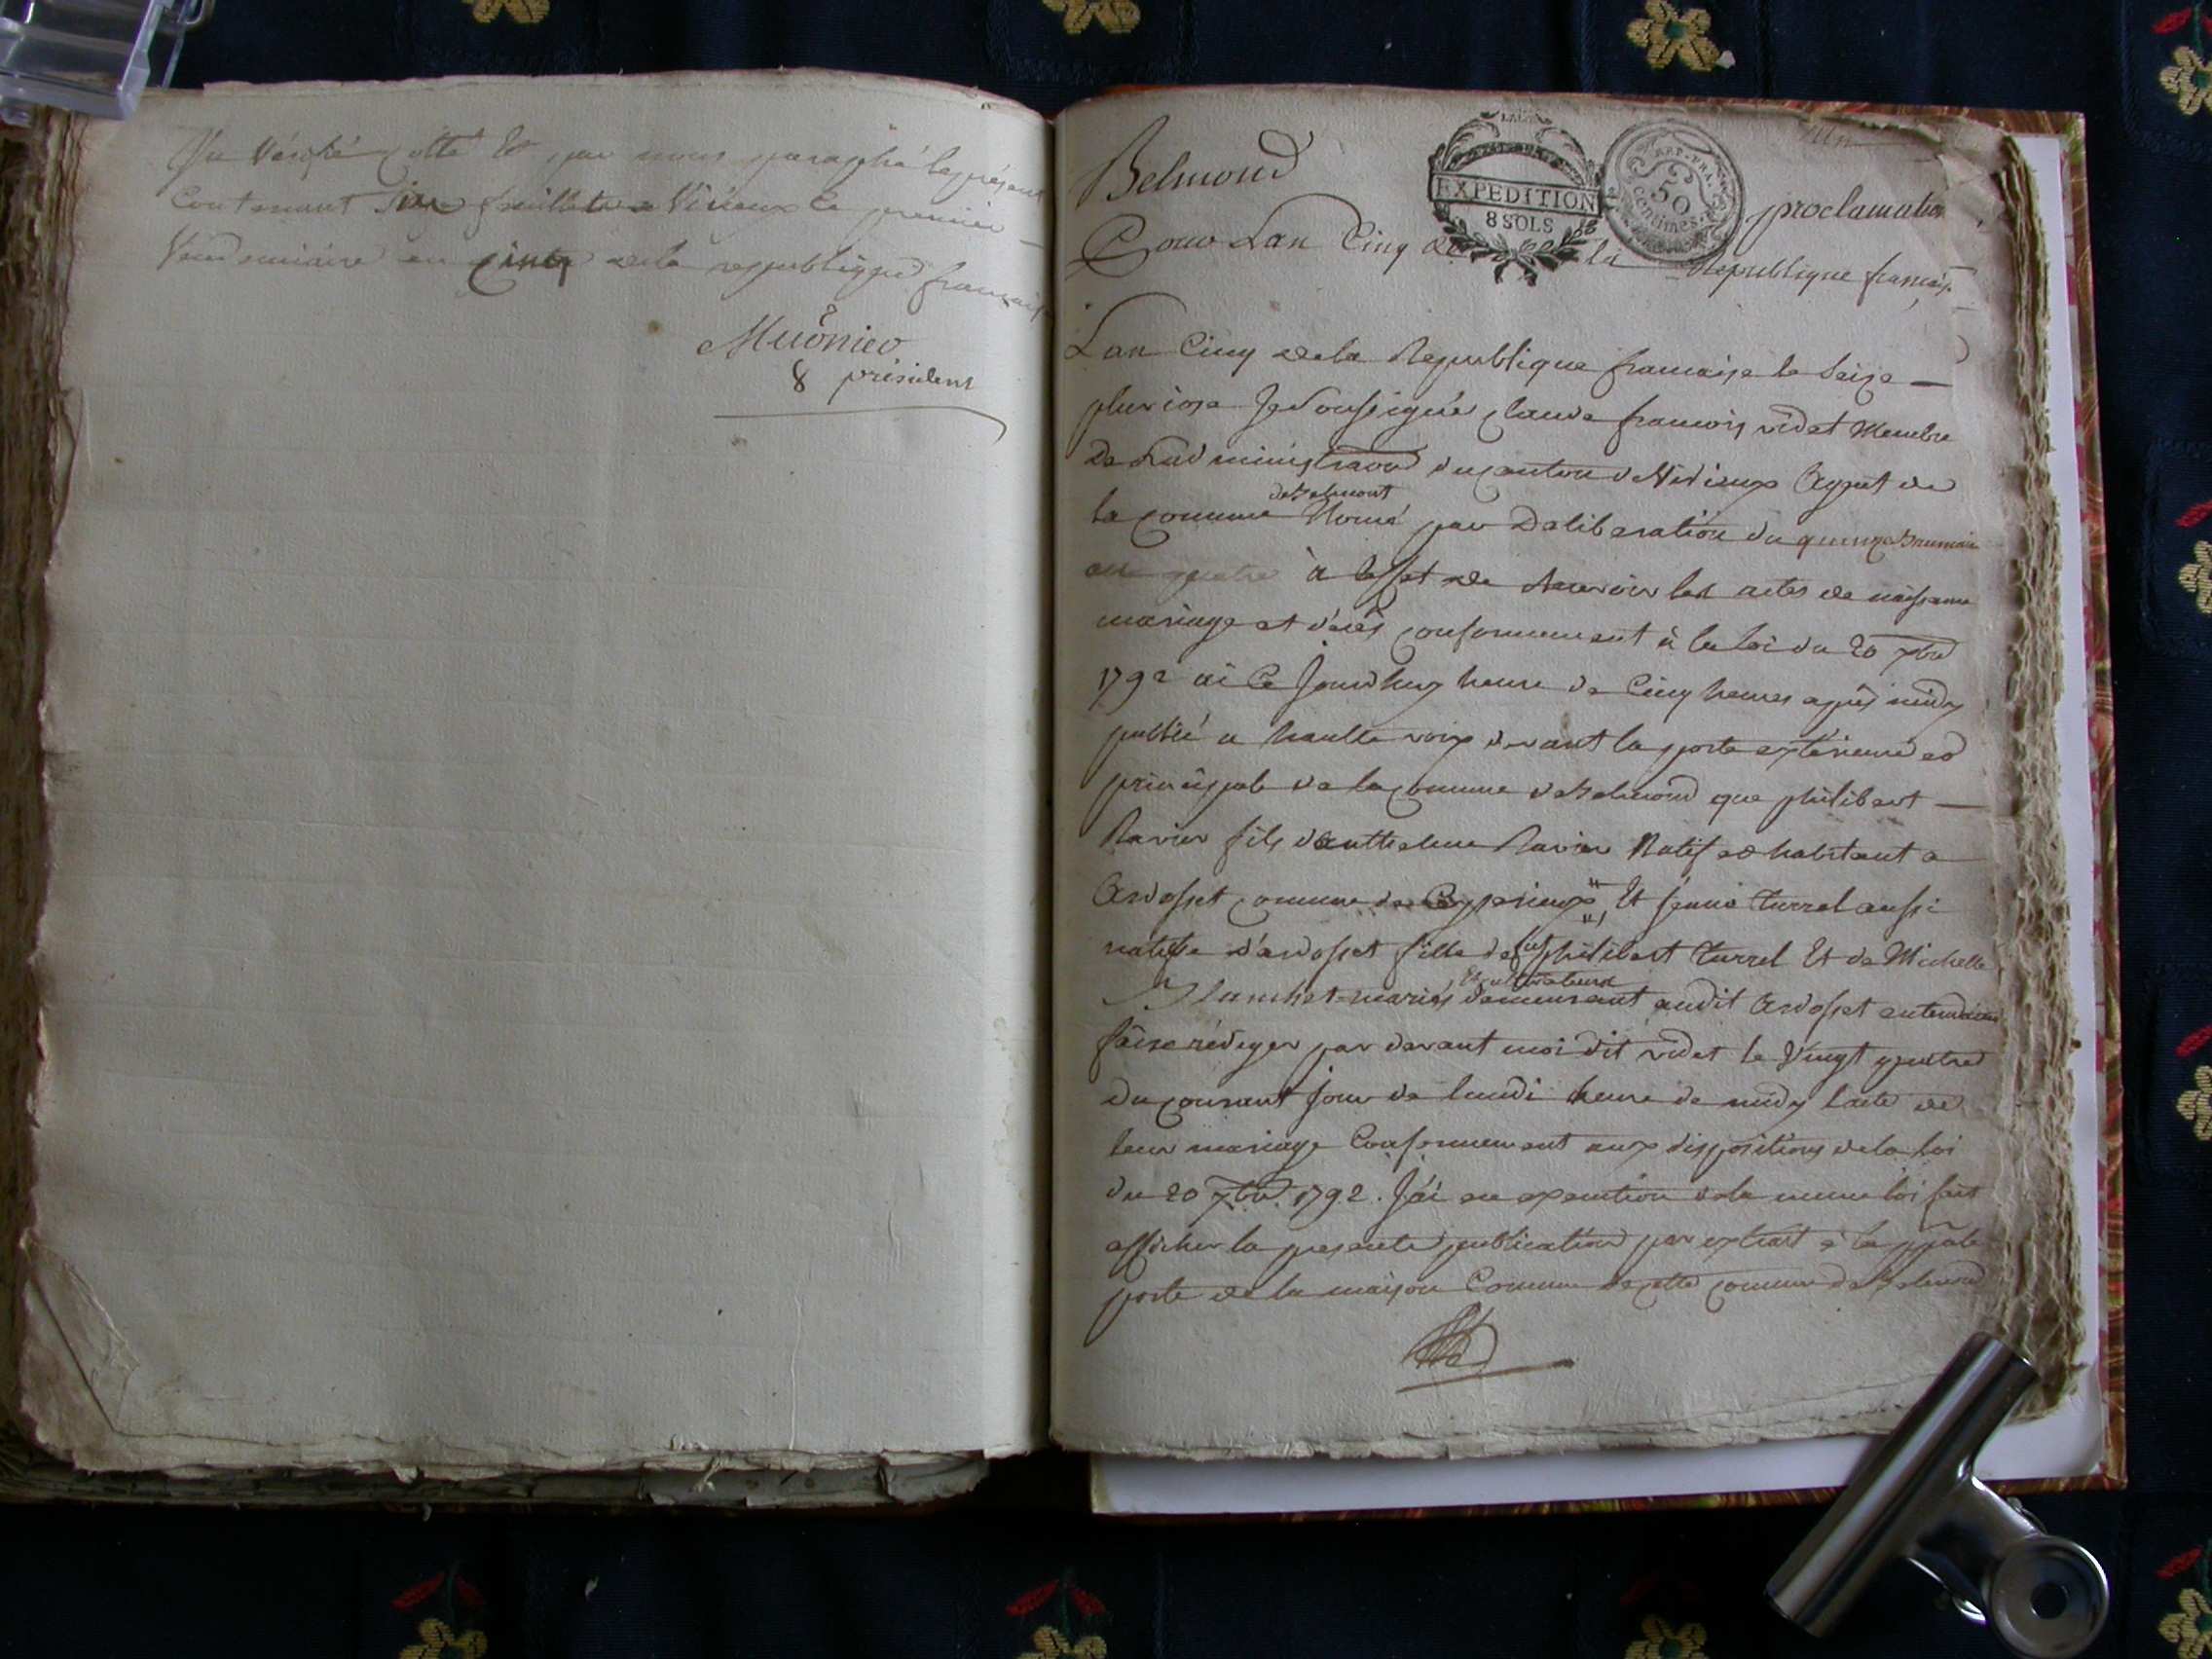 Vu Vérifié Cotté Et par nous paraphé le présent
Contenant Six feuillets a Virieux Ce premier
Vendemiaire an Cinq de la republique francaise
Meûnier
président
Un
Belmond
EXPEDITION
8 SOLS
REP. FRA.
50
Centimes
proclamation
Pour Lan Cinq de la Republique francaise
Lan Cinq de la Republique francaise le Seize
pluviose Je Soussigné Claude francois videt Membre
De Ladministraon du canton de Virieux Agent de
la commune de Belmont Nomé par Deliberation du quinze Brumaire
an quatre à leffet de recevoir les actes de naissance
mariage et décès conformement à la loi du 20 7bre
1792 ai Ce Jourdhuy heure de Cinq heures après midy
publié a haulte voix devant la porte exterieure et
principale de la commune de Belmond que philibert
Ravier fils danthelme Ravier Natif et habitant a
Ardosset commune de Ceyzerieux Et Jenne Turrel aussi
native d'ardosset fille de fut philibert Turrel Et de Michelle
Blanchet mariés Et cultivateurs demeurant audit Ardosset entendaient
faire rédiger par devant moi dit videt le Vingt quatre
du courant Jour de lundi heure de midy lacte de
leur mariage Conformement aux dispositions de la loi
du 20 7bre 1792. J'ai en execution de la meme loi fait
afficher la presente publication par extrait à la pple
porte de la maison Commune de cette commune de Belmond